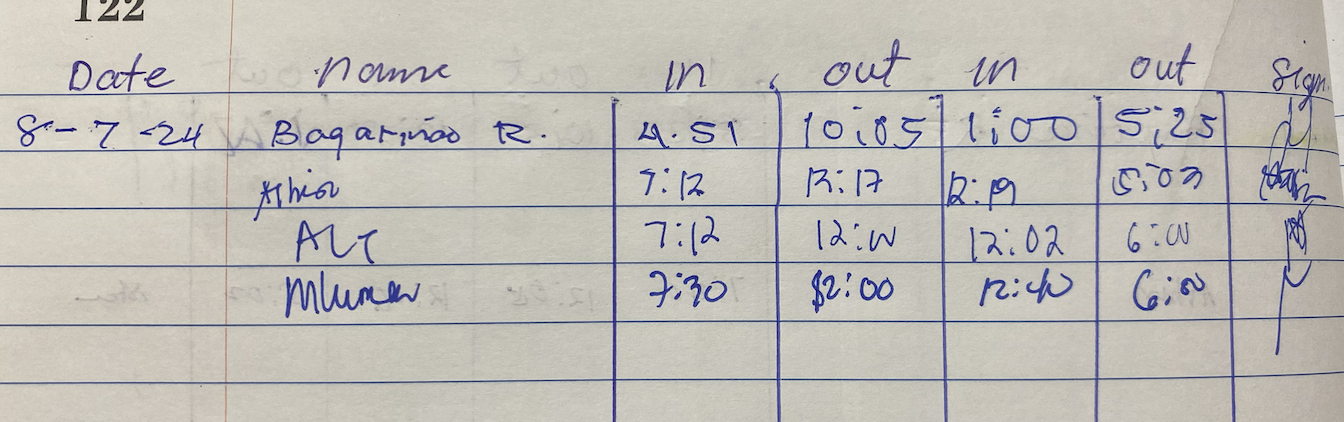 122
Date Name In out In out Sign
8-7-24 Bagarinao R. 4.51 10:05 1:00 5:25
7:12 12:17 12:19 5:03
ALT 7:12 12:00 12:02 6:00
7:30 12:00 12:40 6:00